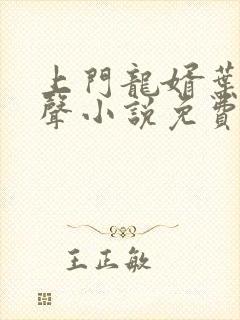 上門龍婿葉
聲小說免費
王正敏